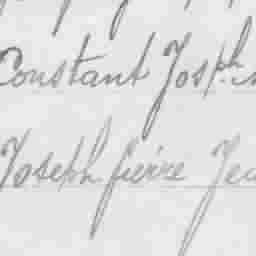 Constant Josph
Joseph pierre Jea